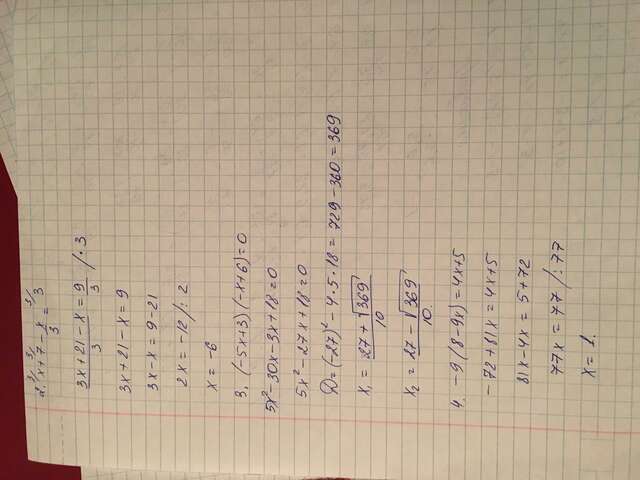 2. x + 7 - x/3 = 3
(3x + 21 - x)/3 = 9/3 /·3
3x + 21 - x = 9
3x - x = 9 - 21
2x = -12 /: 2
x = -6
3. (-5x+3)(-x+6) = 0
5x² - 30x - 3x + 18 = 0
5x² - 27x + 18 = 0
D = (-27)² - 4·5·18 = 729 - 360 = 369
x₁ = (27 + √369)/10
x₂ = (27 - √369)/10
4. -9(8-9x) = 4x+5
-72 + 81x = 4x+5
81x - 4x = 5 + 72
77x = 77 /: 77
x = 1.